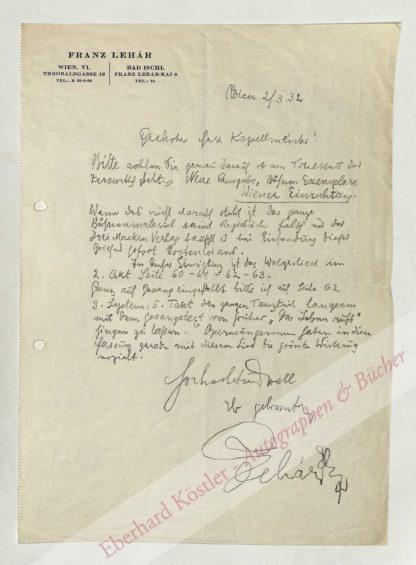 FRANZ LEHÁR
WIEN, VI.
THEOBALDGASSE 16
BAD ISCHL
FRANZ LEHÁR-KAI 8
Wien 2/3.32
Herr Kapellmeister!
Bitte achten Sie genau darauf ob am Titelblatt des
Zarewitsch steht: Neue Ausgabe, Bühnen Exemplare
Wiener Einrichtung.
Wenn das nicht darauf steht ist das ganze
Bühnenmaterial samt Regiebuch falsch und der
Drei Masken Verlag tauscht es bei Einsendung dieses
sofort kostenlos
In ist das Walzerlied im
2. Akt Seite 60-61-62-63.
Ganz auf Gesang eingestellt bitte ich auf Seite 62
3. System, 5. Takt den ganzen Tanzteil langsam
mit dem Gesangstext von früher „Das Leben ruft"
singen zu lassen. Opernsängerinnen haben in dieser
Fassung gerade mit diesem Lied die größte Wirkung
erzielt!
Hochachtungsvoll
Lehár
Eberhard Köstler - Autographen & Bücher